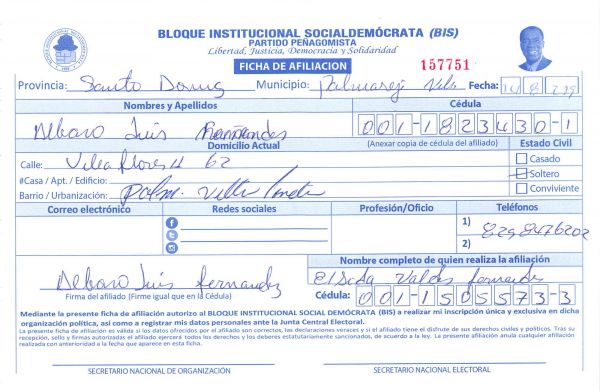 BLOQUE INSTITUCIONAL SOCIALDEMÓCRATA (BIS)
PARTIDO PEÑAGOMISTA
Libertad, Justicia, Democracia y Solidaridad
FICHA DE AFILIACION
157751
Provincia: Santo Domg Municipio: Palmarejo Villa Fecha: 14 8 219
Nombres y Apellidos Cédula
Albaro Luis Fernandes 001-1823430-1
Domicilio Actual (Anexar copia de cédula del afiliado) Estado Civil
Calle: Villa flores 4 62 Casado
#Casa / Apt. / Edificio: Soltero
Barrio / Urbanización: Palm. Villa Linda Conviviente
Correo electrónico Redes sociales Profesión/Oficio Teléfonos
1) 8298476202
2)
Nombre completo de quien realiza la afiliación
Albaro Luis fernandez Valdes fernandez
Firma del afiliado (Firme igual que en la Cédula) Cédula: 001-1505573-3
Mediante la presente ficha de afiliación autorizo al BLOQUE INSTITUCIONAL SOCIAL DEMÓCRATA (BIS) a realizar mi inscripción única y exclusiva en dicha
organización política, así como a registrar mis datos personales ante la Junta Central Electoral.
La presente ficha de afiliación es válida si los datos ofrecidos por el afiliado son correctos, las declaraciones veraces y si el afiliado tiene el disfrute de sus derechos civiles y políticos. Tras su
recepción, sello y firmas autorizadas el afiliado ejercerá todos los derechos y los deberes estatutariamente sancionados, de acuerdo a la ley. La presente afiliación anula cualquier afiliación
realizada con anterioridad a la fecha que aparece en esta ficha.
SECRETARIO NACIONAL DE ORGANIZACIÓN SECRETARIO NACIONAL ELECTORAL